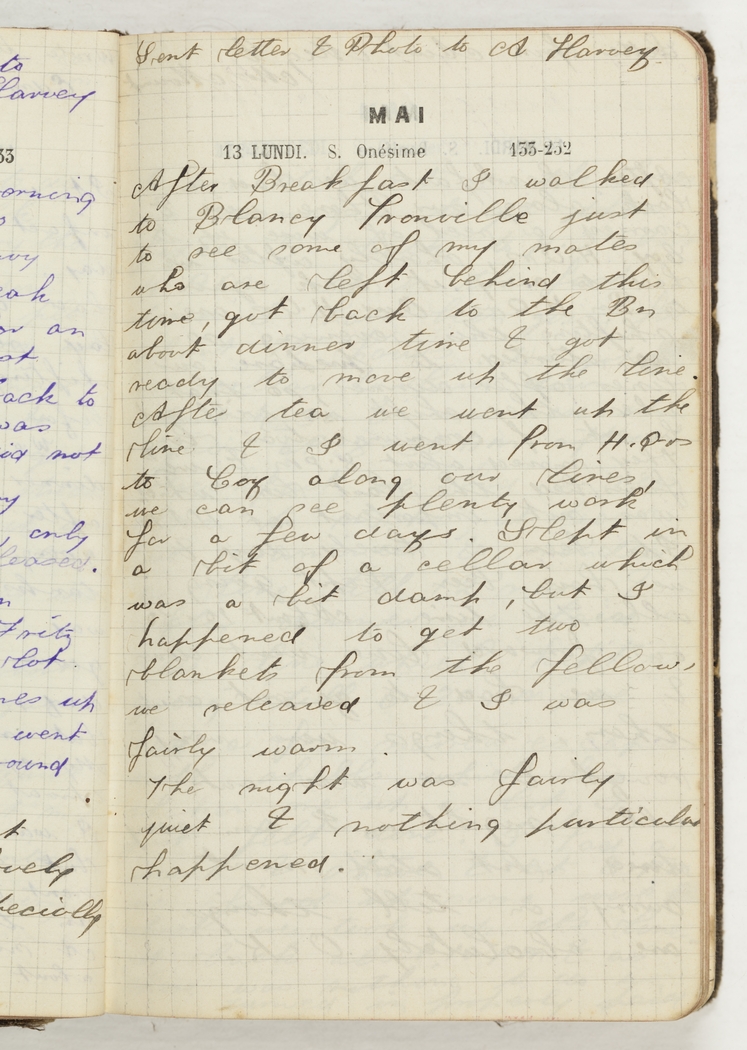 to
Harvey
33
orning
oak
or an
st
back to
was
id not
only
leased.
Fritz
lot.
nes up
went
round
t
vely
pecially
Sent letter & Photo to A Harvey
MAI
13 LUNDI. S. Onésime 133-232
After Breakfast I walked
to Blancy Tronville just
to see some of my mates
who are left behind this
time, got back to the Bn
about dinner time & got
ready to move up the line.
After tea we went up the
line & I went from H.Qrs
to Coy along our lines,
we can see plenty work
for a few days. Slept in
a bit of a cellar which
was a bit damp, but I
happened to get two
blankets from the fellows
we releaived & I was
fairly warm.
The night was fairly
quiet & nothing particular
happened.